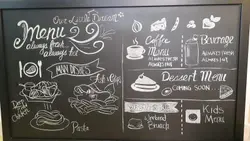 Our Little Dessert
Menu
always fresh
always hot
MAIN DISHES
Hot Dogs
Pasta
Coffee
Menu
ALWAYS FRESH
ALWAYS HOT
Beverage
ALWAYS FRESH
ALWAYS HOT
Dessert Menu
COMING SOON...
Weekend
Brunch
Kids
Menu